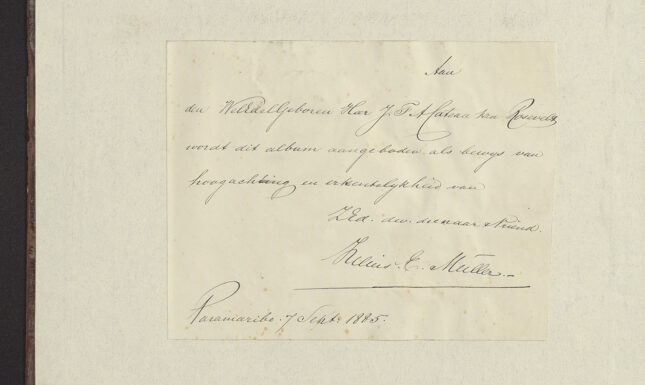 Aan
den WelEdelGeboren Heer J. F. A. Cateau van Rosevelt
wordt dit album aangeboden als bewys van
hoogachting en erkentelykheid van
ZEd. dw. dienaar & Vriend.
Julius E. Muller.
Paramaribo. 7 Sept. 1885.